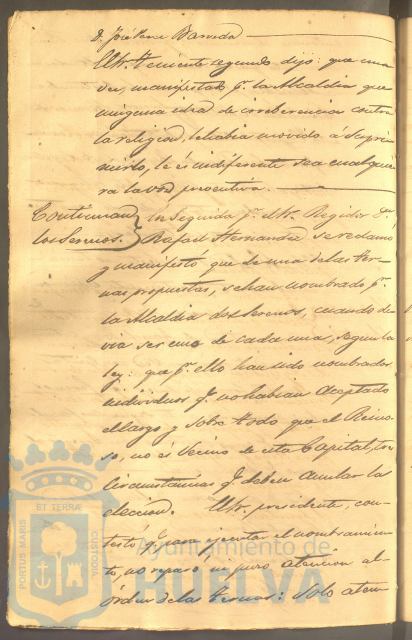 D. José Perez Barreda
El Sr. Teniente segundo dijo: que una
vez manifestado pr. la Alcaldia que
ninguna idea de irreberencia contra
la religion, le habia movido á supri
mirlo, le és indiferente, sea cualquie
ra la vos preventiva.
Continuan
los Serenos.
En seguida pr. el Sr. Regidor Dn.
Rafael Hernandez se reclamó
y manifestó que de una de las ter-
nas propuestas, se han nombrado pr.
la Alcaldia dos Serenos, cuando de
via ser uno de cada una, segun la
ley: que pr. ello han sido nombrados
individuos qe. no habian aceptado
el cargo y sobre todo que el Reino
so, no és Vecino de esta Capital, tres
circunstancias qe. deben anular la
eleccion. El Sr. presidente, con-
testó qe. para ejecutar el nombramien
to, no reparó ni puso atencion al
órden de las ternas: Solo aten
PORTUS MARIS
ET TERRÆ
CUSTODIA
Ayuntamiento de
HUELVA